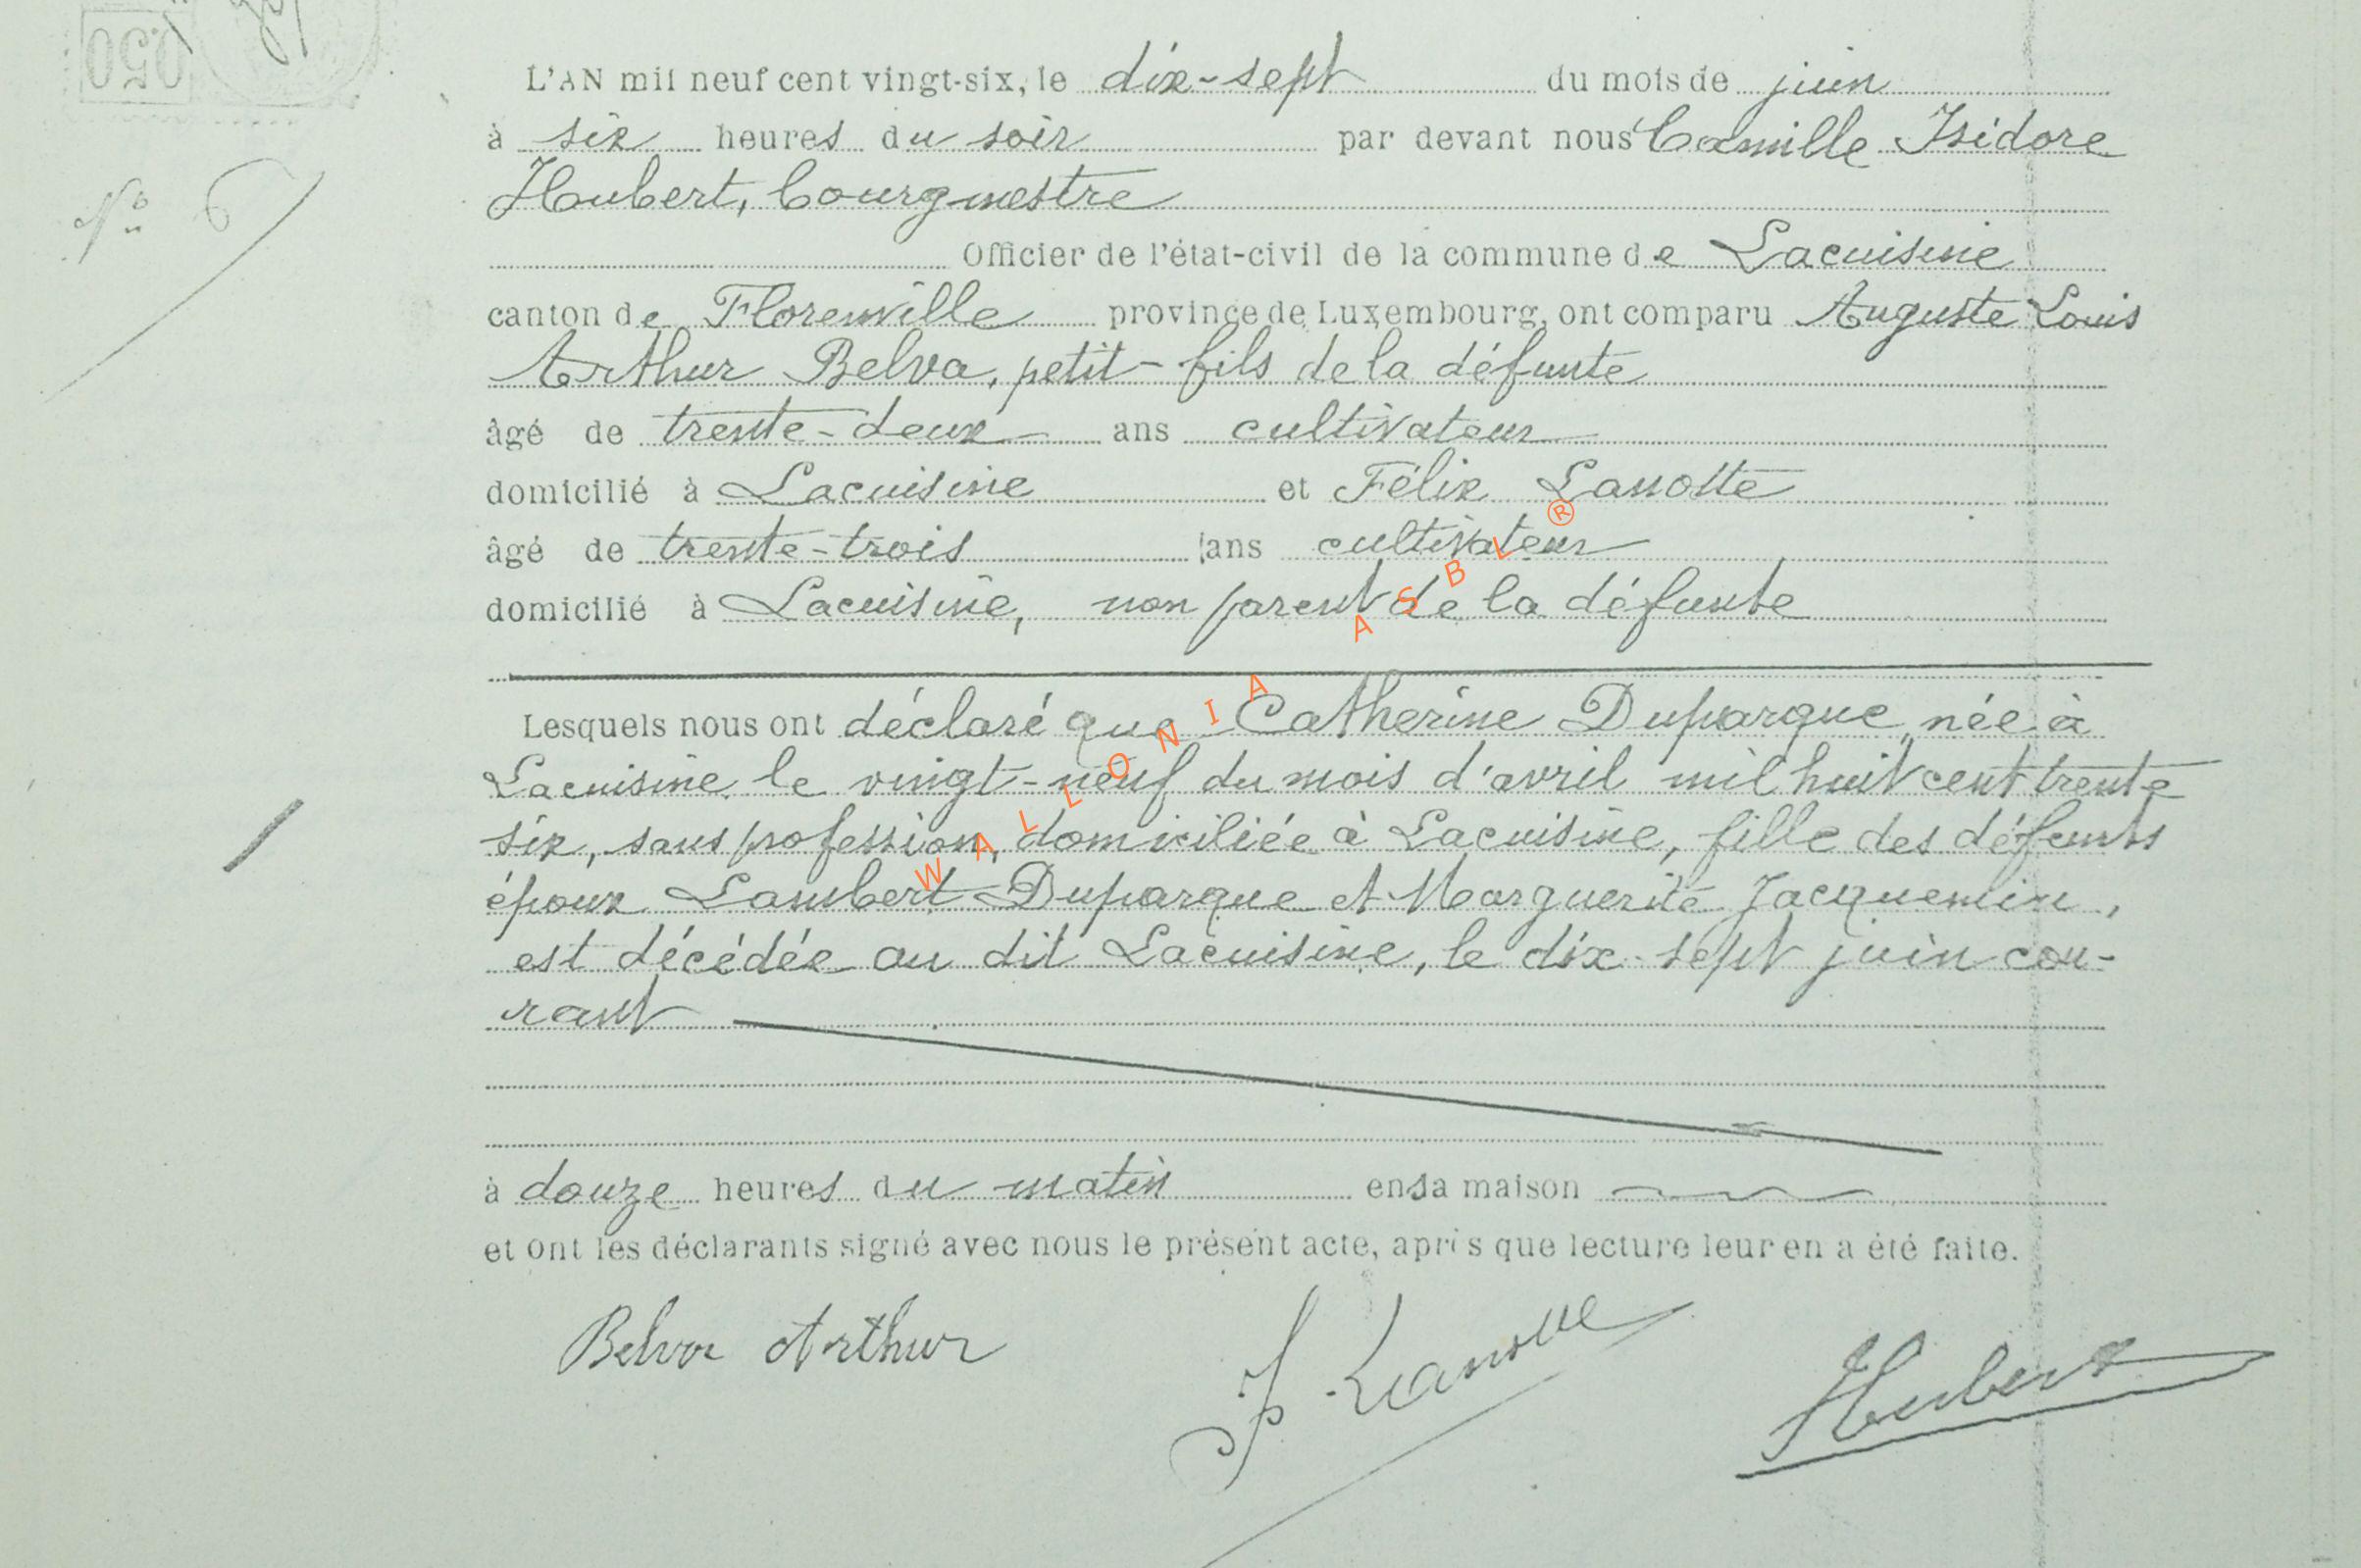 050
L'AN mil neuf cent vingt-six, le dix-sept du mois de juin
à six heures du soir par devant nous Camille Isidore
N° 6
Hubert, bourgmestre
Officier de l'état-civil de la commune de Lacuisine
canton de Florenville province de Luxembourg, ont comparu Auguste Louis
Arthur Belva, petit-fils de la défunte
âgé de trente-deux ans cultivateur
domicilié à Lacuisine et Félix Lanotte
âgé de trente-trois ans cultivateur
domicilié à Lacuisine, non parent de la défunte
Lesquels nous ont déclaré que Catherine Duparque, née à
Lacuisine le vingt-neuf du mois d'avril mil huit cent trente
six, sans profession, domiciliée à Lacuisine, fille des défunts
époux Lambert Duparque et Marguerite Jacquemin,
est décédée au dit Lacuisine, le dix-sept juin cou-
rant
à douze heures du matin en sa maison
et ont les déclarants signé avec nous le présent acte, après que lecture leur en a été faite.
Belva Arthur
F Lanotte
Hubert
WALLONIA ASBL ®